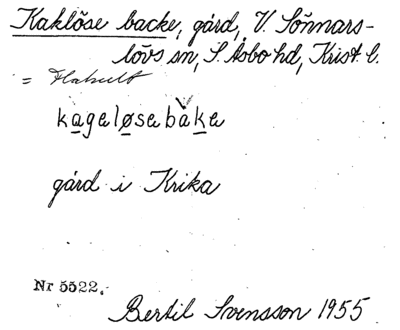 Kaklöse backe, gård, V. Sönnars-
lövs sn, S. Åsbo hd, Krist. l.
= Hakult
kageløsebàke
gård i Krika
Nr 5522.
Bertil Svensson 1955